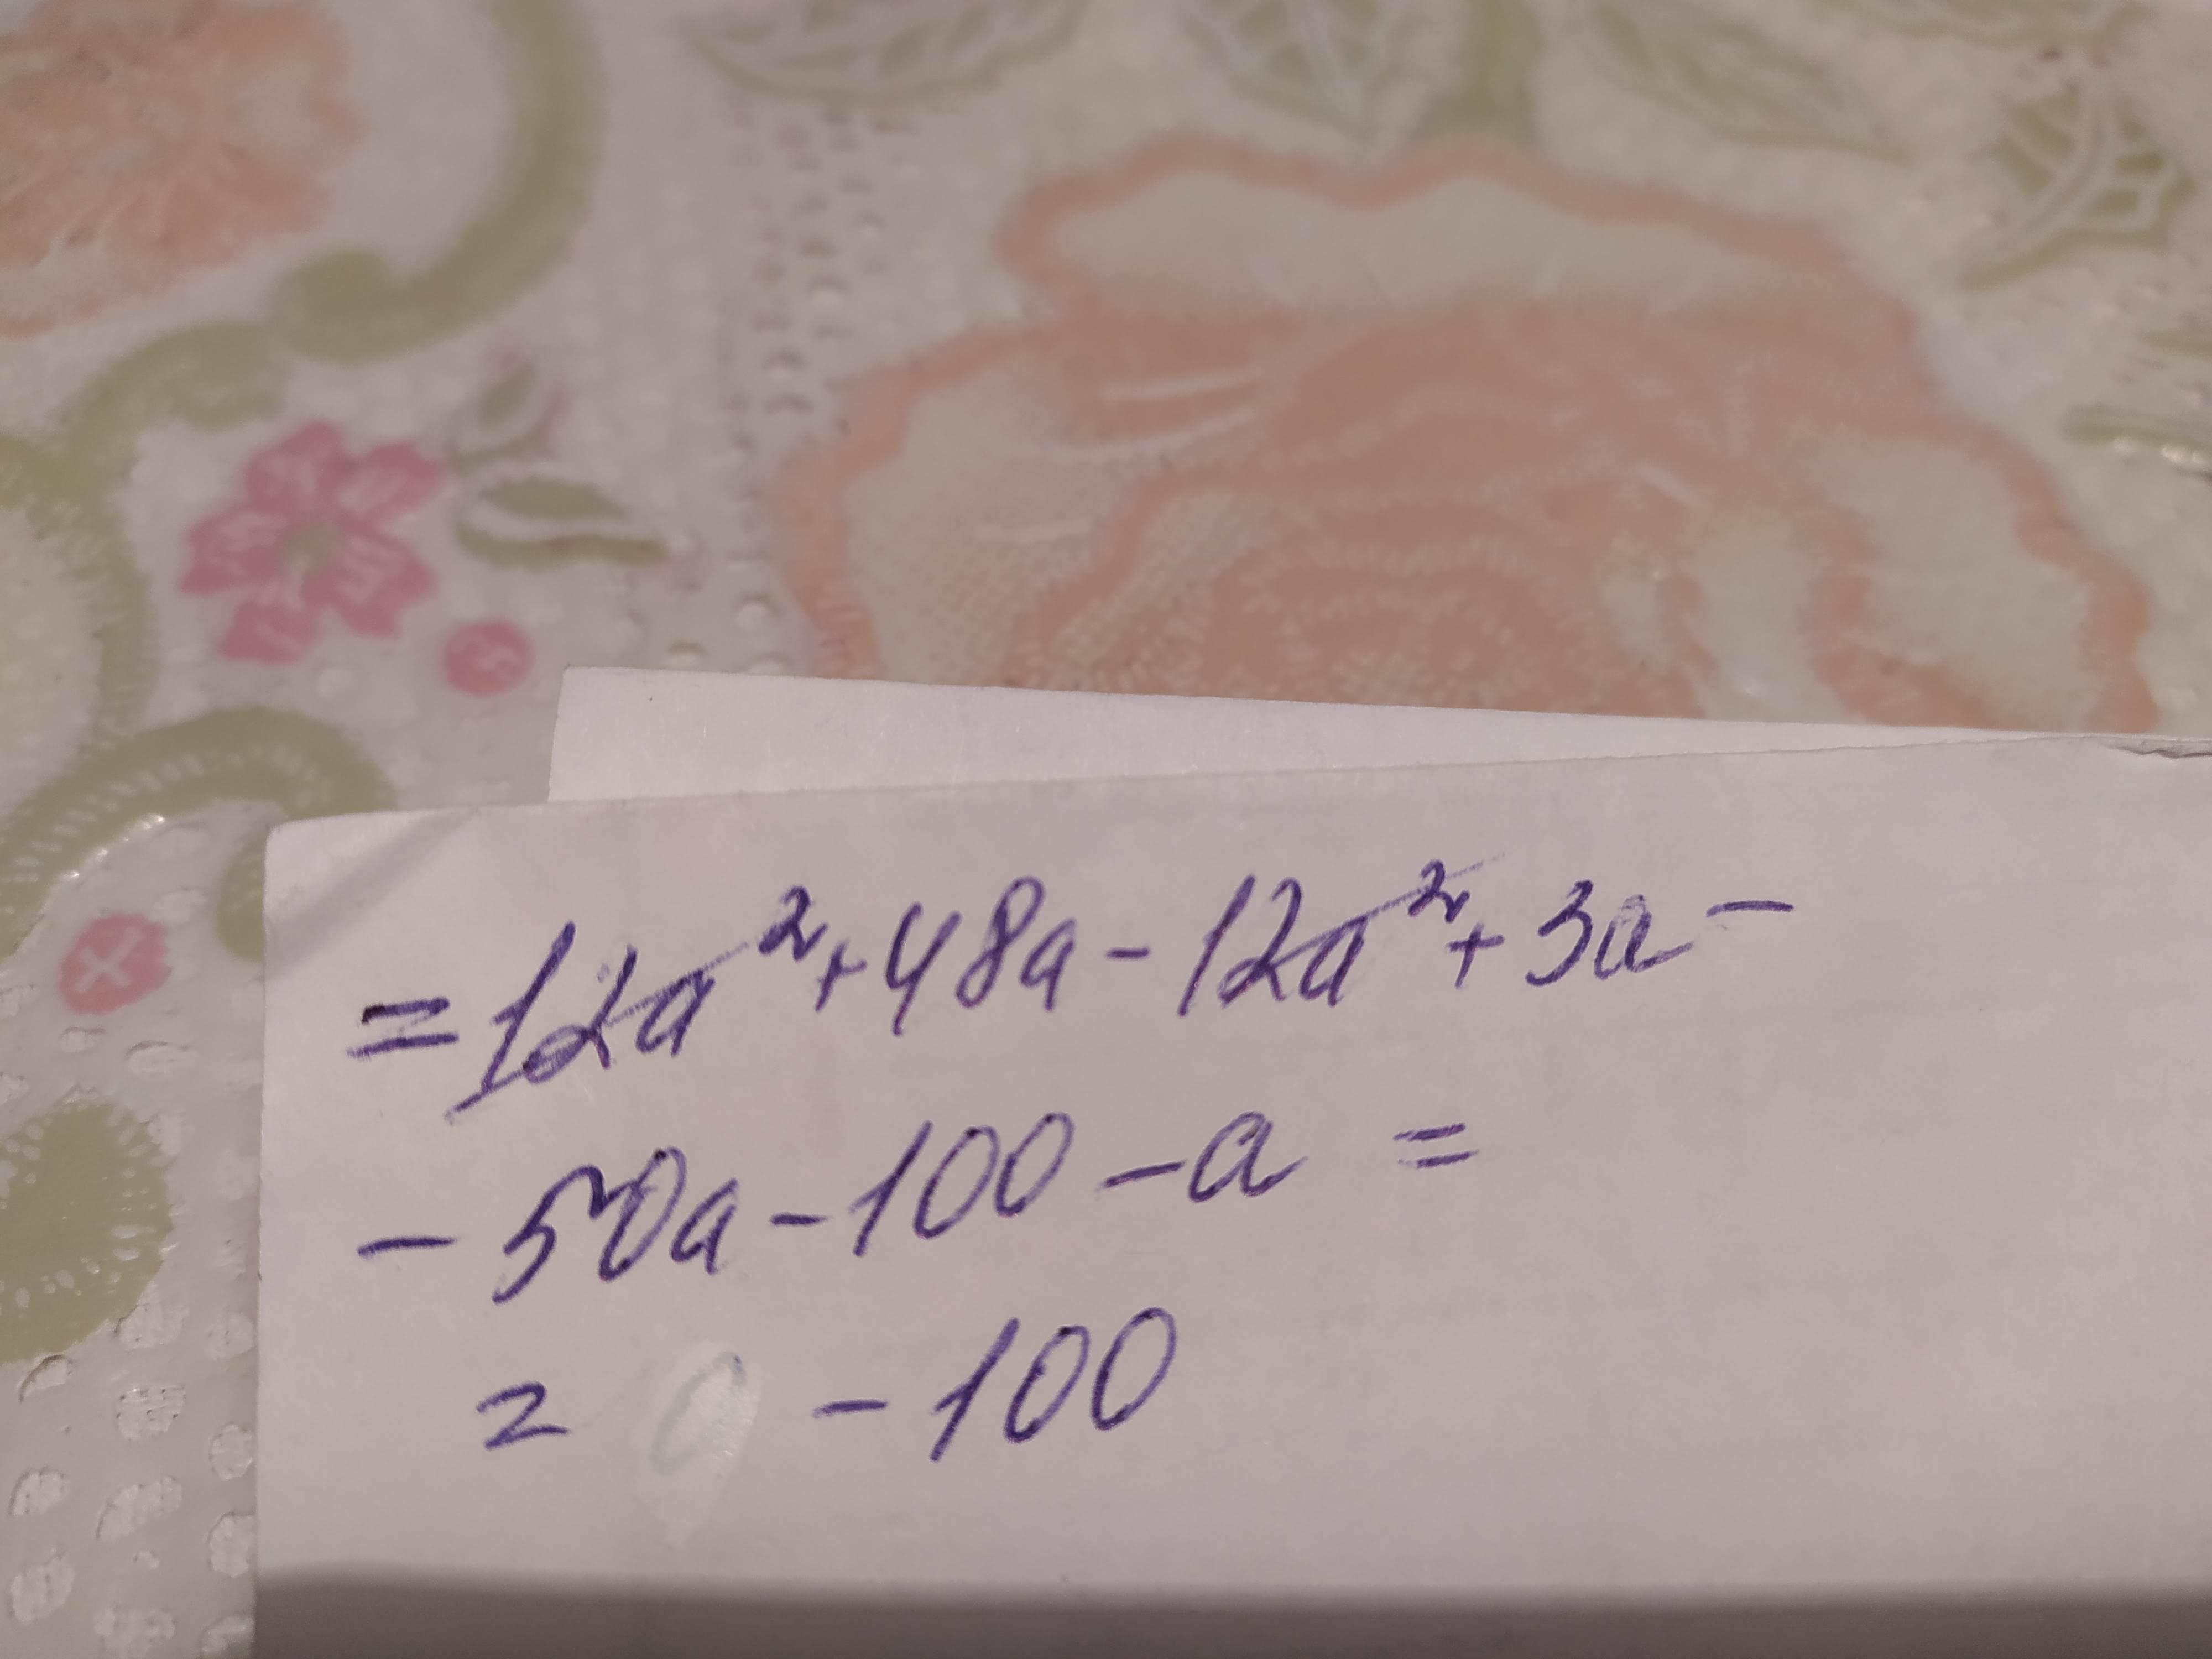 = 12a² + 48a - 12a² + 3a -
- 50a - 100 - a =
= - 100